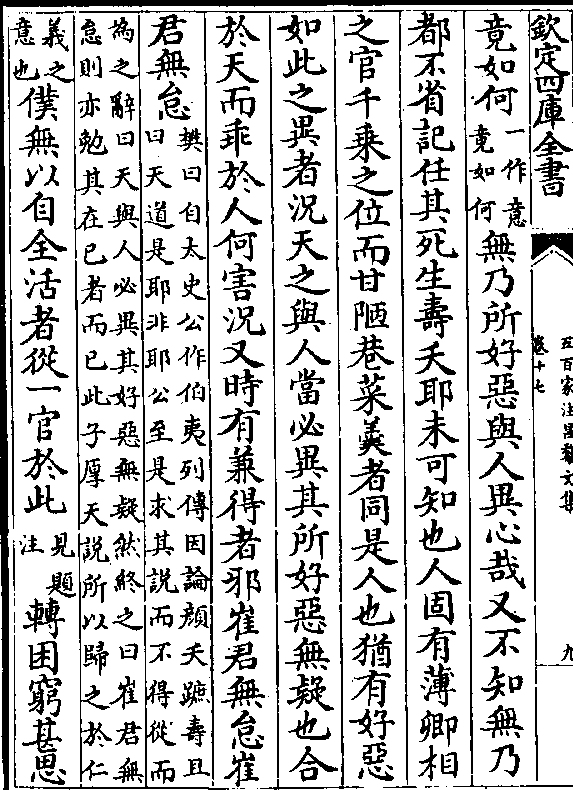 欽定四庫全書
五百家注昌黎文集
卷十七
九
竟如何一作意竟如何無乃所好惡與人異心哉又不知無乃
都不省記任其死生壽夭耶未可知也人固有薄卿相
之官千乗之位而甘陋巷菜羹者同是人也猶有好惡
如此之異者況天之與人當必異其所好惡無疑也合
於天而乖於人何害況又時有兼得者邪崔君無怠崔
君無怠樊曰自太史公作伯夷列傳因論顔夭蹠壽且
曰天道是耶非耶公至是求其説而不得從而
為之辭曰天與人必異其好惡無疑然終之曰崔君無
怠則亦勉其在已者而已此子厚天説所以歸之於仁
義之意也僕無以自全活者從一官於此見題注轉困窮甚思